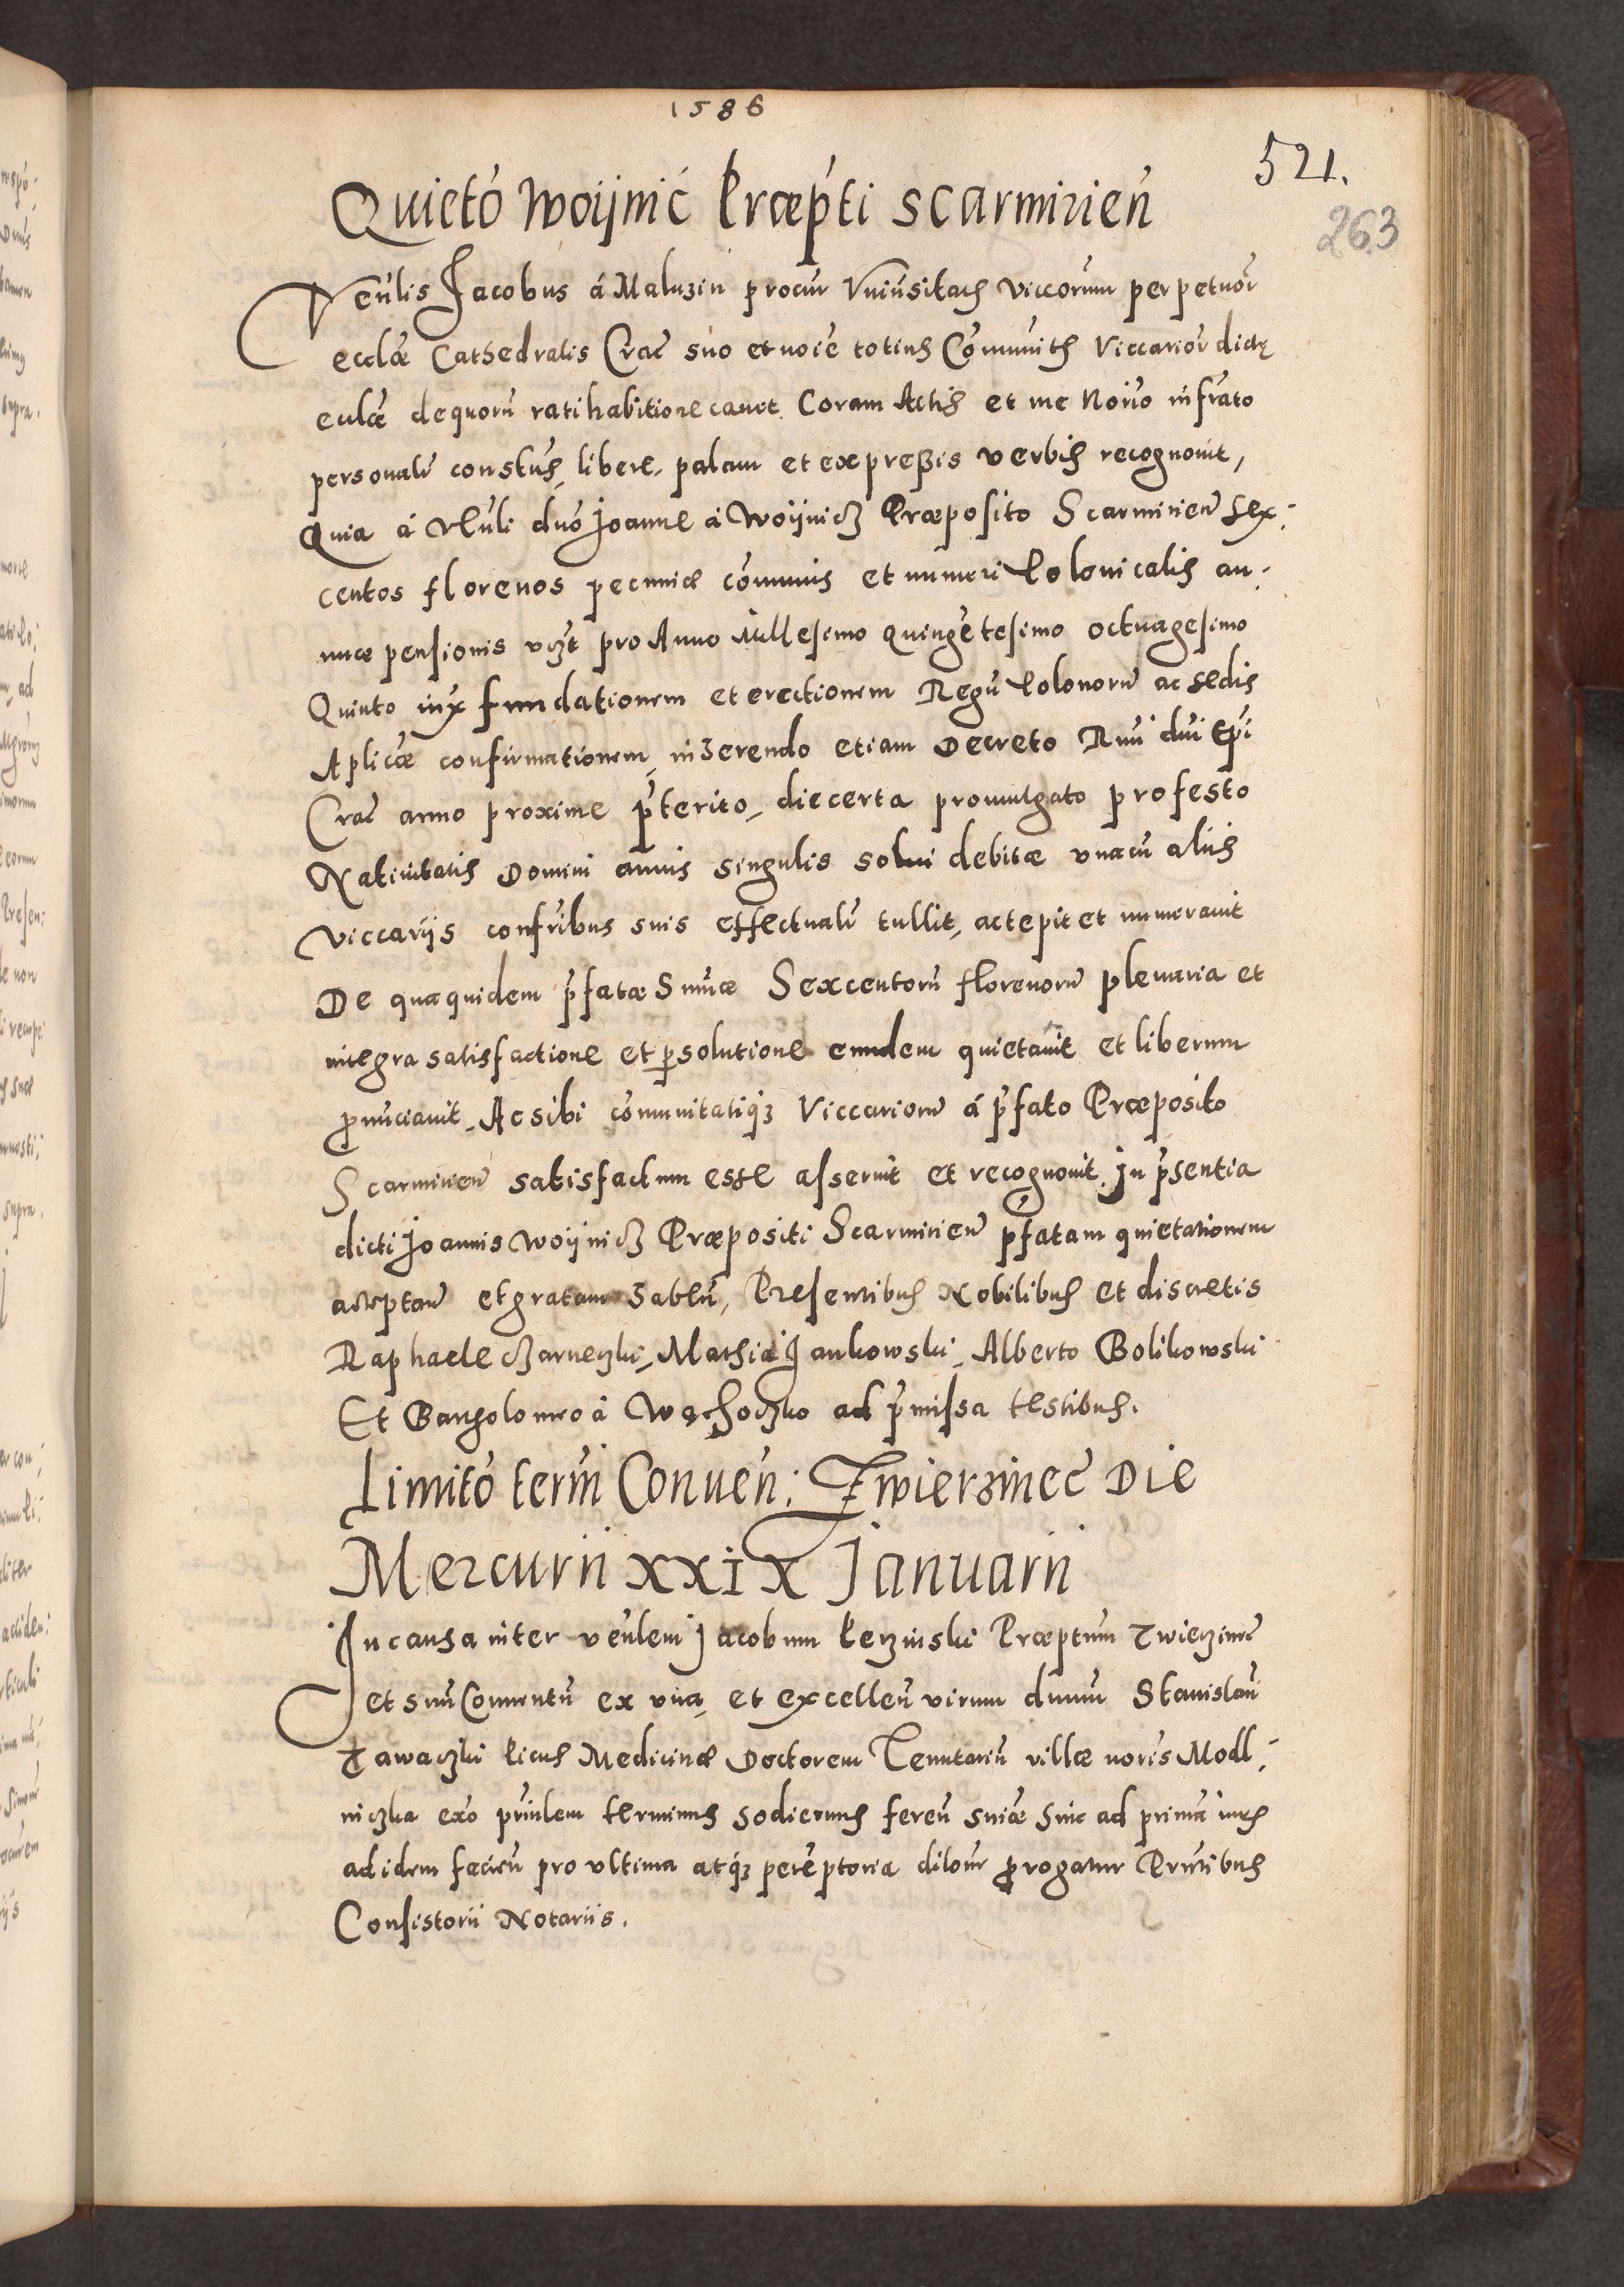 1586
521.
263
Quieto Woijnic Præpti Scarmirien
Venlis Jacobus á Maluzin procur Vniusitatis viccorum perpetuor
ecclæ Cathedralis Crac suo et noie totius Comunitts Viccarior dictę
eulæ de quoru ratihabitione cavet Coram Actis et me Norio infrato
personalr constus, libere, palam et expreßis verbis recognouit,
Quia á Vluli dno Joanne á Woijnicz Præposito Scarmirien Sex:
centos florenos pecuniæ comunis et numeri Polonicalis an:
nuæ pensionis vzt pro Anno Millesimo quingetesimo octuagesimo
Quinto iux fundationem et erectionem Regu Polonoru ac sedis
Aplicæ confirmationem, inherendo etiam Decreto Rmi dni Epi
Crac anno proxime pterito, die certa promulgato pro festo
Natiuitatis Domini annis singulis solui debitæ vnacu aliis
viccarijs confribus suis effectualr tullit, accepit et numerauit
De qua quidem pfatæ Smuæ Sexcentoru florenoru plenaria et
integra satisfactione et psolutione eundem quietauit et liberum
pnuciauit, Ac sibi comunitatiqz Viccarioru á pfato Præposito
Scarmirien satisfactum esse asseruit et recognouit. In psentia
dicti Joannis Woijnicz Præpositi Scarmirien pfatam quietationem
acceptan et gratam haben, Presentibus Nobilibus et discretis
Raphaele Czarneczki, Mathia Jankowski, Alberto Bolikowski
Et Bartholomeo á Wąchoczko ad pmissa testibus.
Limito termi Conuen: Zwierzinec Die
Mercurii XXIX Januarii
In causa inter venlem Jacobum Perzinski Præptum Zwierzinec
et suu Conuentu ex vna, et excellen virum dnum Stanislau
Zawaczki Picus Medicinæ Doctorem Tenutariu villæ noris Modl:
niczka exo priulem terminus hodiernus feren sniæ hinc ad prima iuris
ad idem facien pro vltima atqz pereptoria dilone progatur Prntibus
Consistorii Notariis.